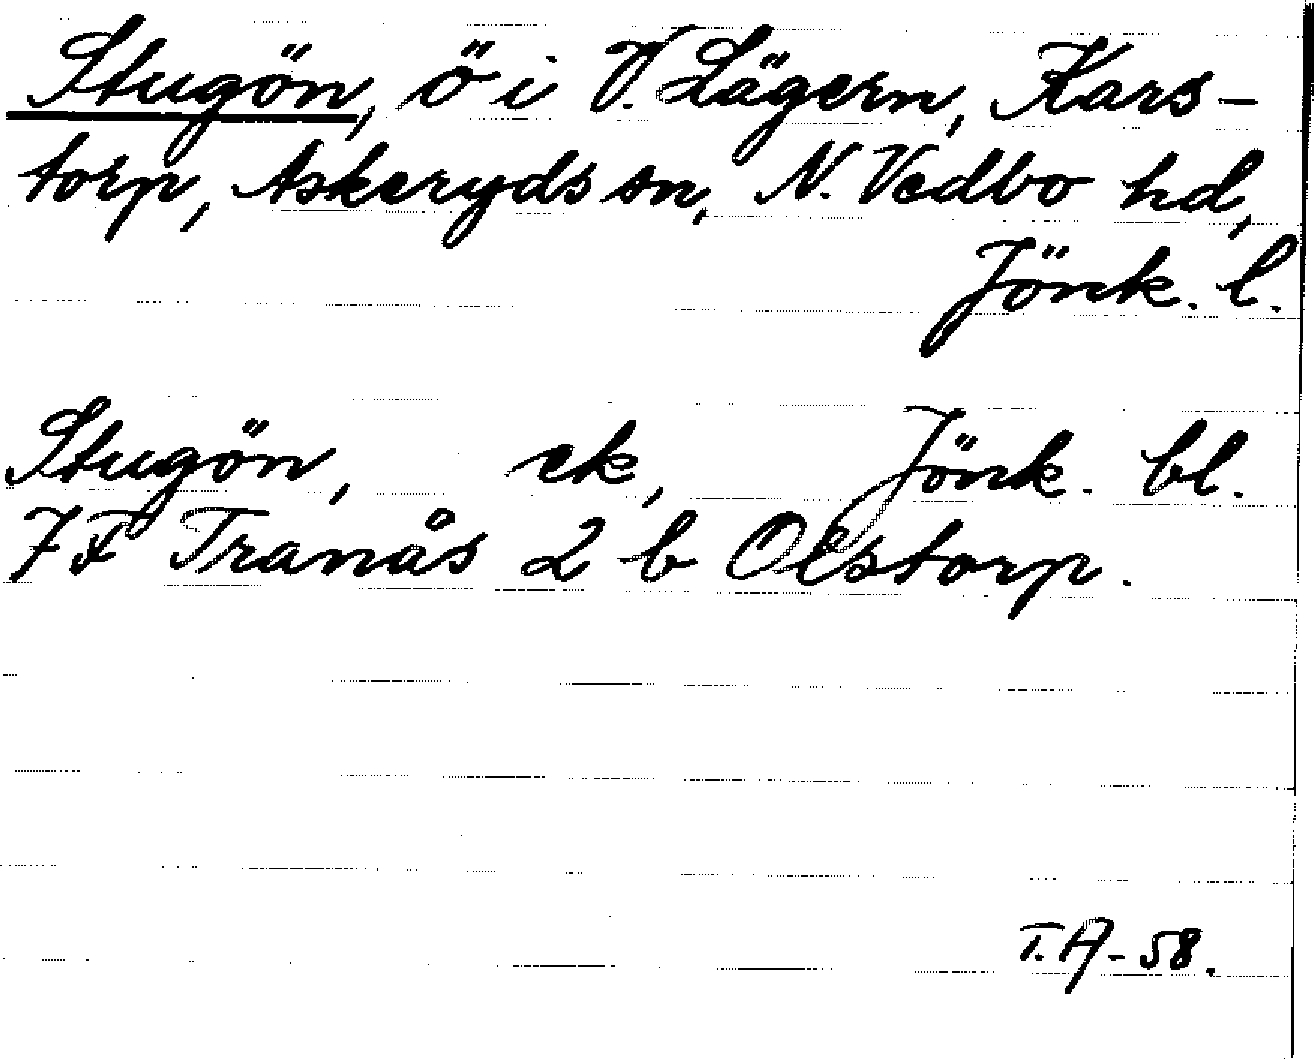 Stugön, ö i V. Lägern, Kars-
torp, Askeryds sn, N. Vedbo hd,
Jönk. l.
Stugön, ek, Jönk. bl.
7F Tranås 2 b Olstorp.
T.A-58.